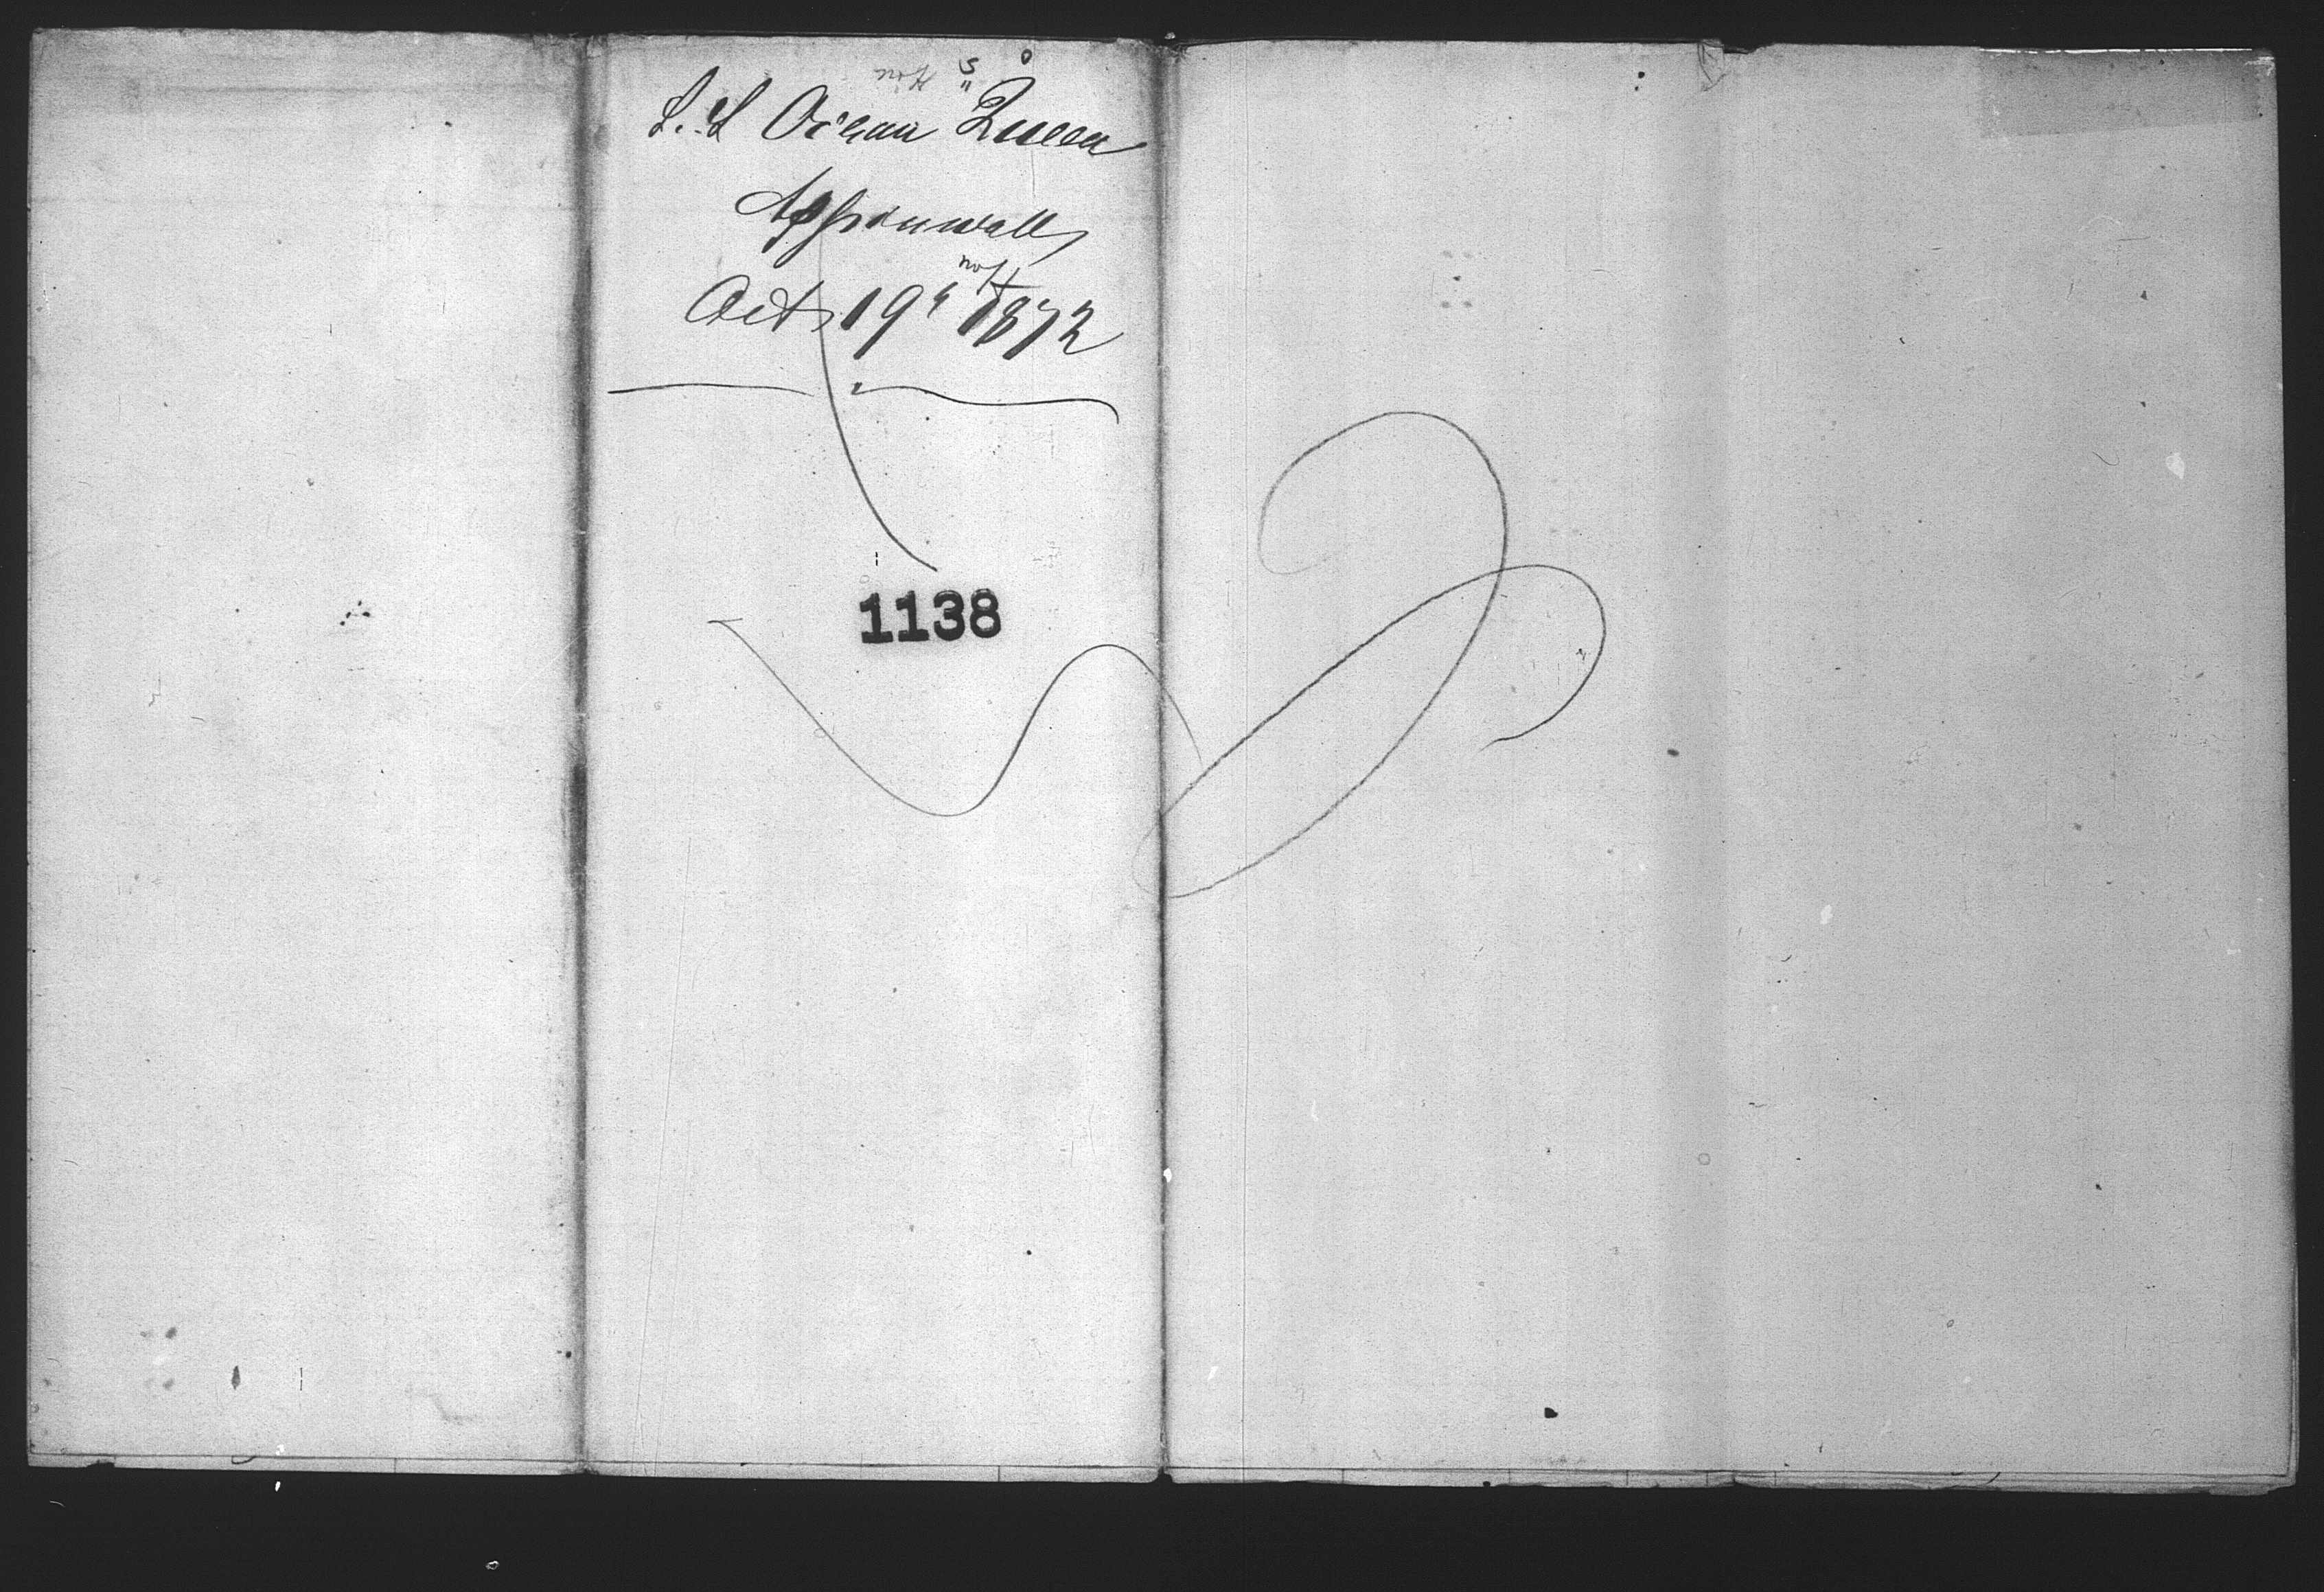 S.S Ocean Queen
Aspinwall
Oct 19th 1872
1138